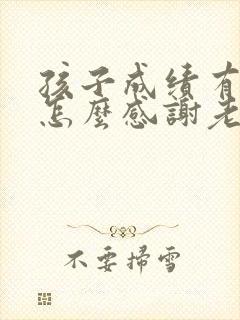 孩子成绩有
怎麼感謝老
不要掃雪